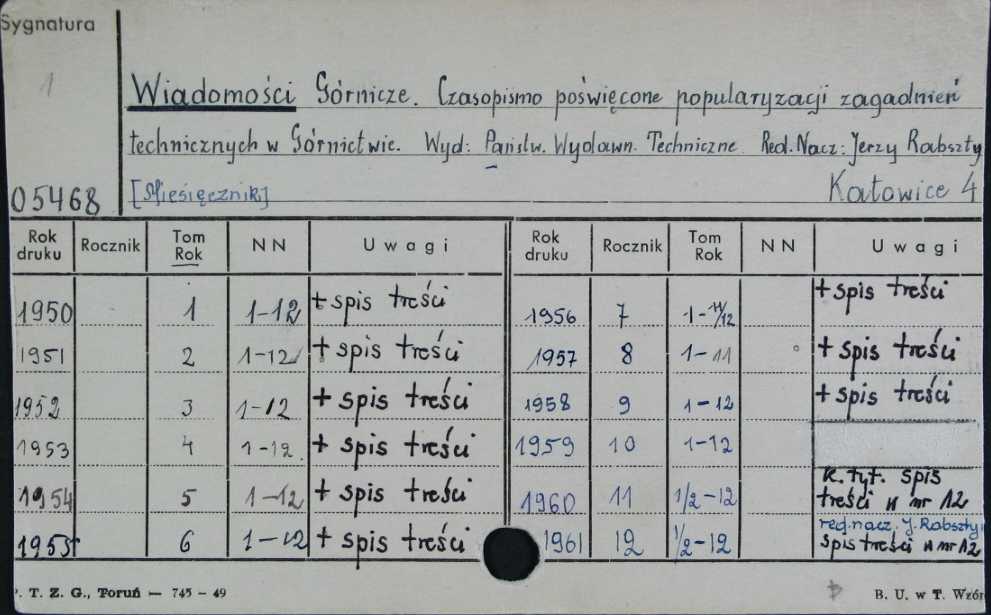 Sygnatura
1
Wiadomości Górnicze. Czasopismo poświęcone popularyzacji zagadnień
technicznych w Górnictwie. Wyd: Państw. Wydawn. Techniczne Red. Nacz: Jerzy Rabszty
05468 [Miesięcznik] Katowice 4
Rok druku Rocznik Tom Rok NN Uwagi Rok druku Rocznik Tom Rok NN Uwagi
1950 1 1-12 + spis treści 1956 7 1-11/12 + spis treści
1951 2 1-12 + spis treści 1957 8 1-11 + spis treści
1952 3 1-12 + spis treści 1958 9 1-12 + spis treści
1953 4 1-12 + spis treści 1959 10 1-12
1954 5 1-12 + spis treści 1960 11 1/2-12 k. tyt. spis treści w nr 12
1955 6 1-12 + spis treści 1961 12 1/2-12 red. nacz. J. Rabszty spis treści w nr 12
P. T. Z. G., Toruń — 745 - 49 B. U. w T. Wzór